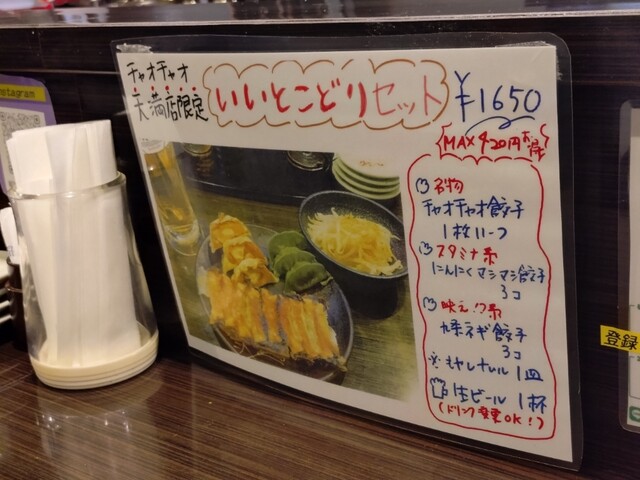 チャオチャオ
天満店限定
いいとこどりセット
¥1650
MAX420円お得
名物
チャオチャオ餃子
1枚
スタミナ系
にんにくマシマシ餃子
3コ
映え系
九条ネギ餃子
3コ
※もやしナムル 1皿
生ビール 1杯
(ドリンク変更OK!)
nstagram
登録